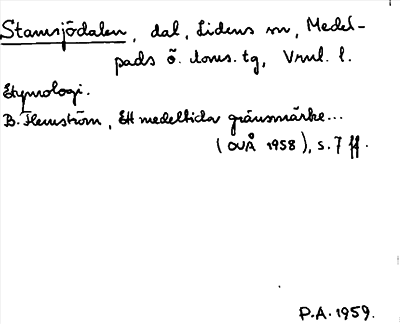 Stamsjödalen, dal, Lidens sn, Medel-
pads ö. doms. tg, Vnrl. l.
Etymologi.
B. Flemström, Ett medeltida gränsmärke...
(OUÅ 1958), s. 7 ff.
P.A. 1959.